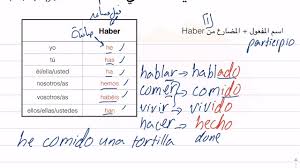 اسم المفعول + المضارع من Haber
participio
Haber
yo he
tú has
él/ella/usted ha
nosotros/as hemos
vosotros/as habéis
ellos/ellas/ustedes han
hablar → hablado
comer → comido
vivir → vivido
hacer → hecho
done
he comido una tortilla